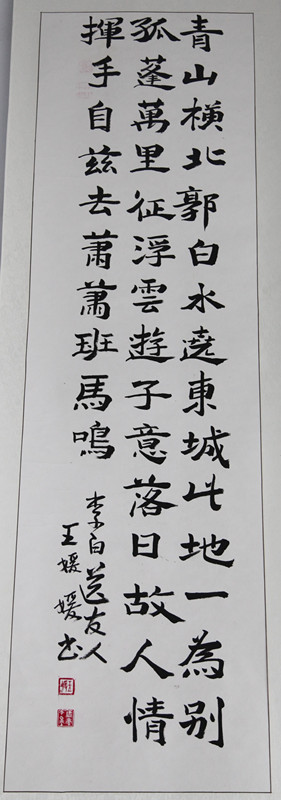 青山横北郭白水遶東城此地一為别
孤蓬萬里征浮雲遊子意落日故人情
揮手自兹去蕭蕭班馬鳴
李白送友人
王媛媛书